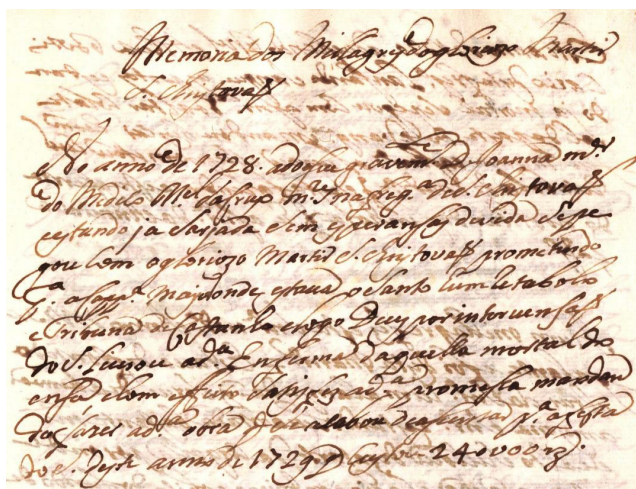 Memoria dos Milagres do gloriozo Martir
S. Christovaõ
No anno de 1728. adoeçeu gravem.te Joanna
do m.er na freg.a de S. Christovaõ
estando ja e sem esperansas de vida se pe
gou com o gloriozo Martir S. Christovaõ prometendo
p.a a Capp.a mayor onde estava o Santo hum retabolo
e Tribuna de Castanho e logo Deus por intervensaõ
do S. Livrou a d.a Enferma daquella mortal do
ensa e com effeito a d.a promessa mandan
do fazer a d.a obra q se acabou p.a a festa
do S. deste anno de 1729 240000 rs.